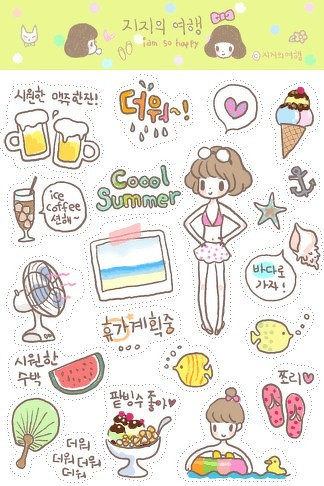 지지의 여행
i am so happy
©지지의여행
시원한 맥주한잔!
더워~!
ice
coffee
션해~
Coool
Summer
바다로
가자!
휴가계획중
시원한
수박
팥빙수 좋아♥
쪼리♥
더워
더워 더워
더워